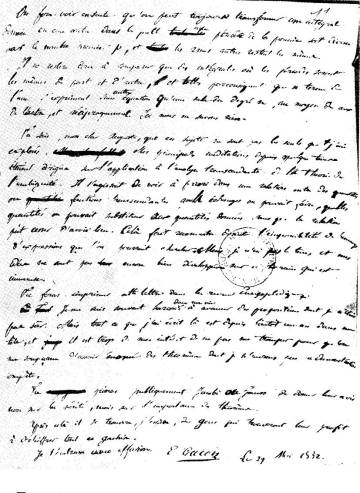 On fait voir ensuite qu'on peut toujours transformer une intégrale
donnée en une autre dans laquelle une période de la première soit divisée
par le nombre premier p, et les 2n-1 autres restent les mêmes.
Il ne restera donc à comparer que des intégrales où les périodes seront
les mêmes de part et d'autre, et telles par conséquent que n termes de
l'une s'expriment sans autre équation qu'une seule du degré n, au moyen de ceux
de l'autre, et réciproquement. Ici nous ne savons rien.
Tu sais, mon cher Auguste, que ces sujets ne sont pas les seuls que j'aie
explorés. Mes principales méditations depuis quelque temps
étaient dirigées sur l'application à l'analyse transcendante de la théorie de
l'ambiguité. Il s'agissait de voir à priori dans une relation entre des quantités
ou fonctions transcendantes quels échanges on pouvait faire, quelles
quantités on pouvait substituer aux quantités données sans que la relation
put cesser d'avoir lieu. Cela fait reconnaitre l'impossibilité de beaucoup
d'expressions que l'on pourrait chercher. Mais je n'ai pas le temps et mes
idées ne sont pas encore bien développées sur ce terrain qui est
immense.
Tu feras imprimer cette lettre dans la revue encyclopédique.
Je me suis souvent hasardé dans ma vie à avancer des propositions dont je n'étais
pas sûr. Mais tout ce que j'ai écrit là est depuis bientôt un an dans ma
tête, et il est trop de mon intérêt de ne pas me tromper pour qu'on
me soupçonne d'avoir énoncé des théorèmes dont je n'aurais pas la démonstration
complète.
Tu prieras publiquement Jacobi ou Gauss de donner leur avis
non sur la vérité, mais sur l'importance des théorèmes.
Après cela il se trouvera, j'espère, des gens qui trouveront leur profit
à déchiffrer tout ce gachis.
Je t'embrasse avec effusion. E Galois Le 29 Mai 1832.